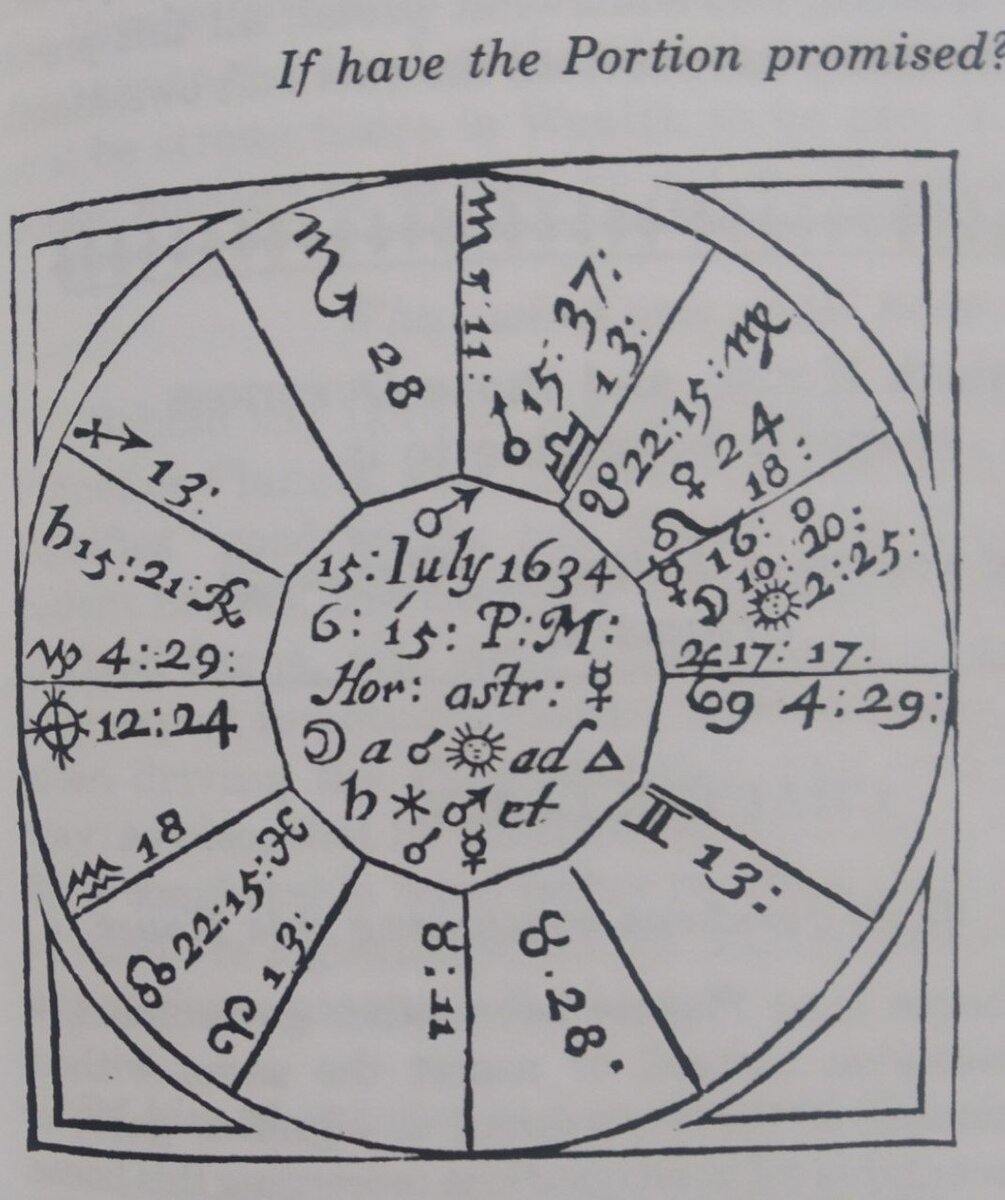 If have the Portion promised?
♏ 28
♏ 11:
♂ 15: 37:
♎ 13:
☋ 22:15: ♍
♀ 24
♌ 18:
☿ 16: 0
☽ 10: 20:
☉ 2:25:
♃ 17: 17.
♋ 4:29:
♊ 13:
♉.28.
♉:11
♈ 13:
☊ 22:15:♓
♒ 18
⊕ 12:24
♑ 4:29:
♄ 15:21:♐
♐ 13:
♂
15: Iuly 1634
6: 15: P:M:
Hor: astr: ☿
☽ a ☌ ☉ ad △
♄ ⚹ ♂ et
☌ ☿